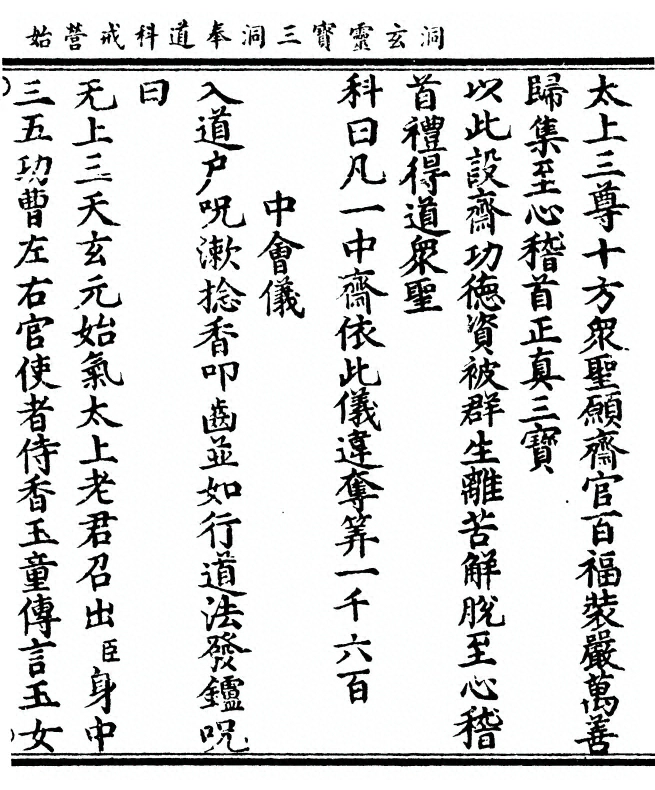 洞玄靈寳三洞奉道科戒營始
太上三尊十方衆聖願齋官百福裝嚴萬善
歸集至心稽首正真三寳
以此設齋功德資被群生離苦解脫至心稽
首禮得道衆聖
科曰凡一中齋依此儀違奪筭一千六百
中會儀
入道户呪漱捻香叩齒並如行道法發鑪呪
曰
无上三天玄元始氣太上老君召出臣身中
三五功曹左右官使者侍香玉童傳言玉女